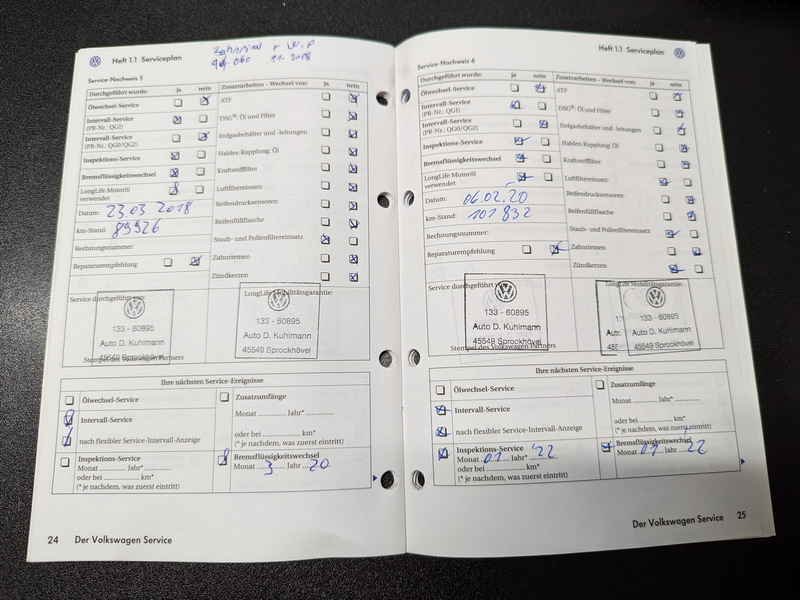 Heft 1.1 Serviceplan
11 2018
Service-Nachweis 5
Durchgeführt wurde: ja nein
Ölwechsel-Service
Intervall-Service
(PR-Nr.: QG1)
Intervall-Service
(PR-Nr.: QG0/QG2)
Inspektions-Service
Bremsflüssigkeitswechsel
LongLife Motoröl
verwendet
Datum: 23.03.2018
km-Stand: 89926
Rechnungsnummer:
Reparaturempfehlung
Zusatzarbeiten - Wechsel von: ja nein
ATF
DSG®: Öl und Filter
Erdgasbehälter und -leitungen
Haldex-Kupplung: Öl
Kraftstofffilter
Luftfiltereinsatz
Reifendrucksensoren
Reifenfüllflasche
Staub- und Pollenfiltereinsatz
Zahnriemen
Zündkerzen
Service durchgeführt von:
133 - 60895
Auto D. Kuhlmann
45549 Sprockhövel
Stempel des Volkswagen Partners
LongLife Mobilitätsgarantie:
133 - 60895
Auto D. Kuhlmann
45549 Sprockhövel
Ihre nächsten Service-Ereignisse
Ölwechsel-Service
Intervall-Service
nach flexibler Service-Intervall-Anzeige
Inspektions-Service
Monat Jahr*
oder bei km*
(* je nachdem, was zuerst eintritt)
Zusatzumfänge
Monat Jahr*
oder bei km*
(* je nachdem, was zuerst eintritt)
Bremsflüssigkeitswechsel
Monat 3 Jahr 20.
24 Der Volkswagen Service
Heft 1.1 Serviceplan
Service-Nachweis 6
Durchgeführt wurde: ja nein
Ölwechsel-Service
Intervall-Service
(PR-Nr.: QG1)
Intervall-Service
(PR-Nr.: QG0/QG2)
Inspektions-Service
Bremsflüssigkeitswechsel
LongLife Motoröl
verwendet
Datum: 06.02.20
km-Stand: 101832
Rechnungsnummer:
Reparaturempfehlung
Zusatzarbeiten - Wechsel von: ja nein
ATF
DSG®: Öl und Filter
Erdgasbehälter und -leitungen
Haldex-Kupplung: Öl
Kraftstofffilter
Luftfiltereinsatz
Reifendrucksensoren
Reifenfüllflasche
Staub- und Pollenfiltereinsatz
Zahnriemen
Zündkerzen
Service durchgeführt von:
133 - 60895
Auto D. Kuhlmann
45549 Sprockhövel
Stempel des Volkswagen Partners
LongLife Mobilitätsgarantie:
133 - 60895
Auto D. Kuhlmann
45549 Sprockhövel
Ihre nächsten Service-Ereignisse
Ölwechsel-Service
Intervall-Service
nach flexibler Service-Intervall-Anzeige
Inspektions-Service
Monat 01 Jahr* '22
oder bei km*
(* je nachdem, was zuerst eintritt)
Zusatzumfänge
Monat Jahr*
oder bei km*
(* je nachdem, was zuerst eintritt)
Bremsflüssigkeitswechsel
Monat 01 Jahr '22
Der Volkswagen Service 25